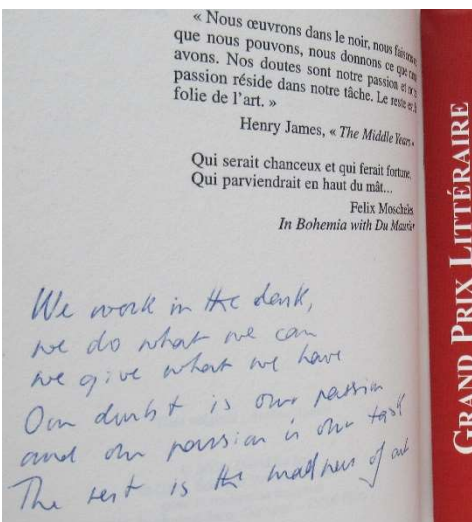 « Nous œuvrons dans le noir, nous faisons ce
que nous pouvons, nous donnons ce que nous
avons. Nos doutes sont notre passion et notre
passion réside dans notre tâche. Le reste est la
folie de l'art. »
Henry James, « The Middle Years »
Qui serait chanceux et qui ferait fortune,
Qui parviendrait en haut du mât...
Felix Moscheles
In Bohemia with Du Maurier
We work in the dark,
we do what we can
we give what we have
Our doubt is our passion
and our passion is our task
The rest is the madness of art
GRAND PRIX LITTÉRAIRE